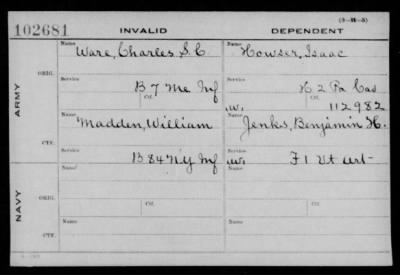 (3-M-5)
102681 INVALID DEPENDENT
Name Name
Ware, Charles S. C. Howser, Isaac
ORIG. Service Service
B 7 Me Inf K 2 Pa Cav
ARMY Ctf. W. Ctf. 112982
Name Name
Madden, William Jenks, Benjamin H.
CTF. Service Service
B 84 N.Y. Inf W. F 1 Vt Art
Name Name
ORIG. Service Service
NAVY Ctf. Ctf.
Name Name
CTF.